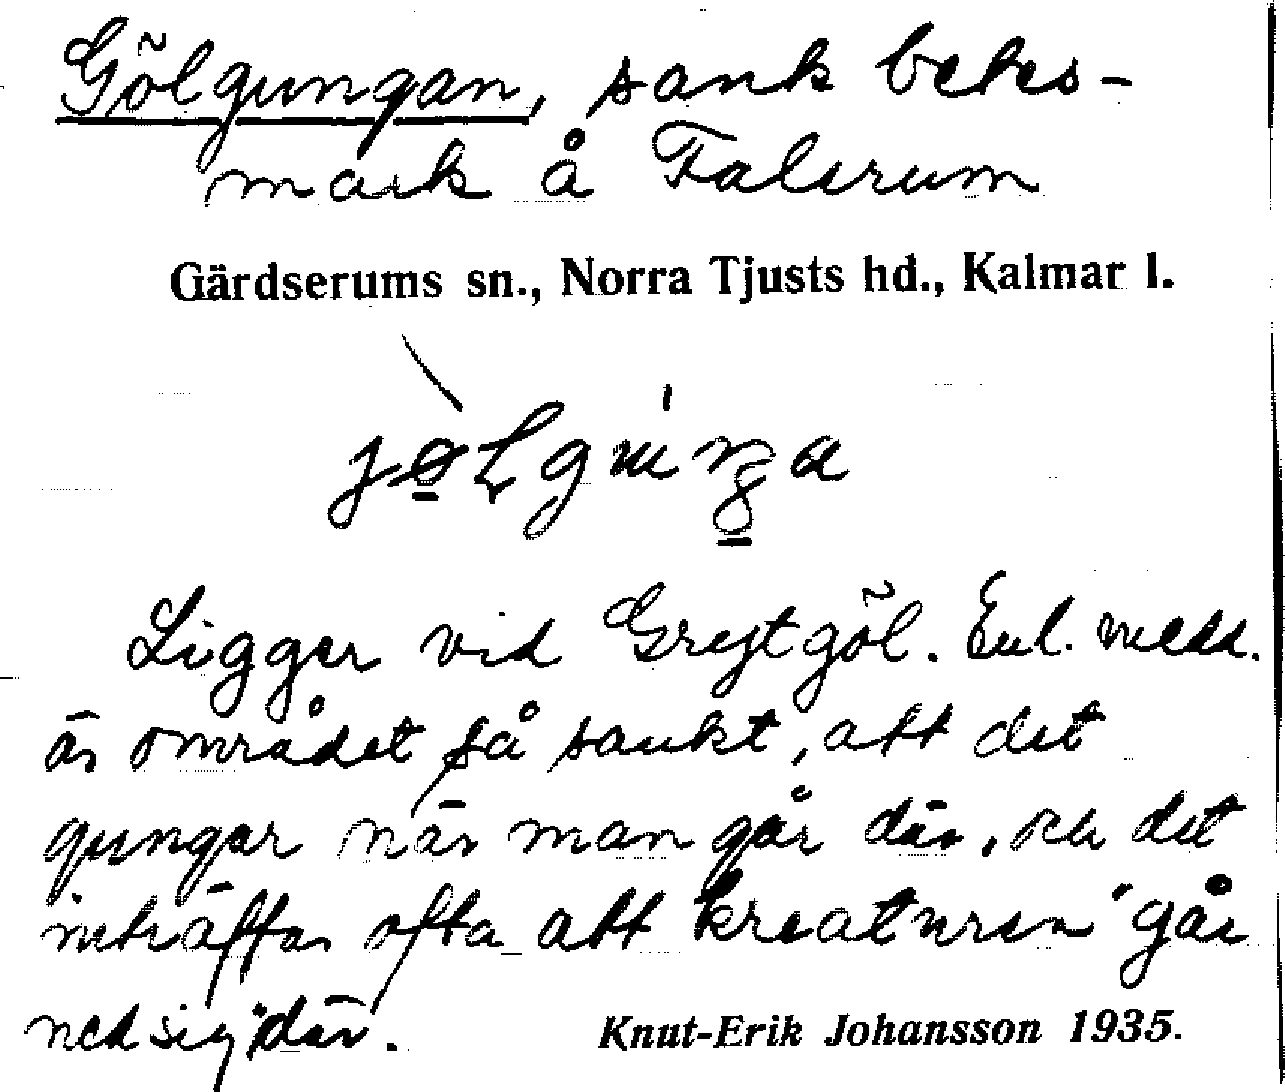 Gölgungan, sank betes-
mark å Falerum
Gärdserums sn., Norra Tjusts hd., Kalmar l.
Ligger vid Greytgöl. Enl. medd.
är området så sankt, att det
gungar när man går där, och det
inträffar ofta att kreaturen "går
ned sig" där.
Knut-Erik Johansson 1935.